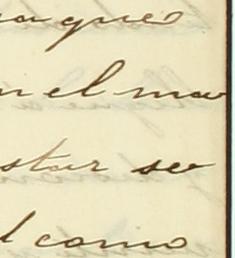 a que
n el mar
star se
l como